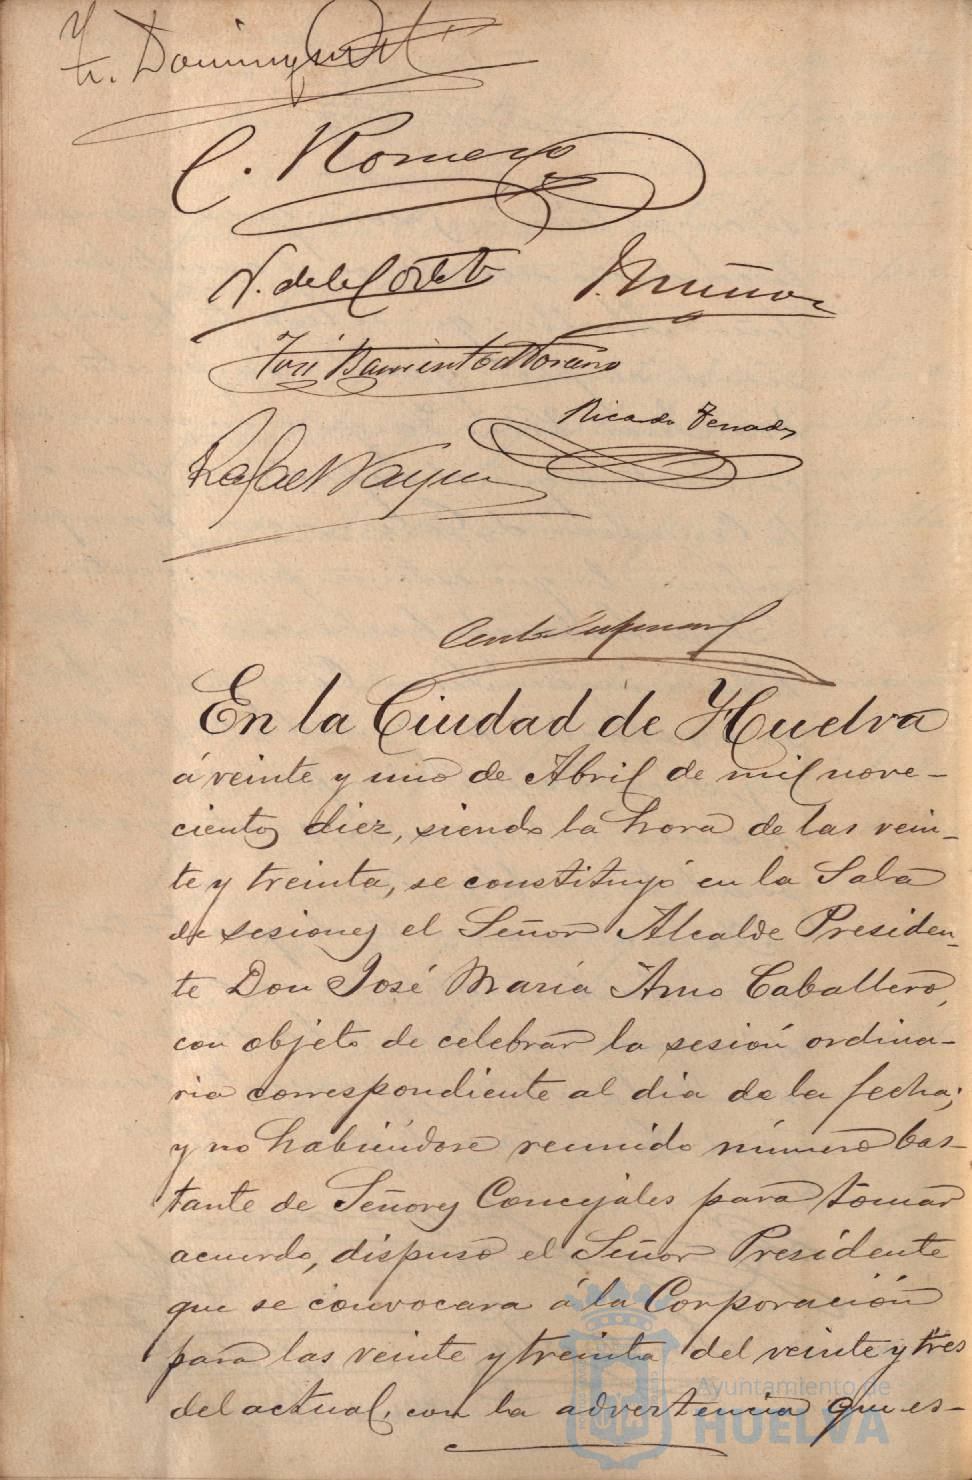 C. Romero
J. Muñoz
José Barrientos Moreno
Ricardo Terrades
Rafael Vazquez
En la Ciudad de Huelva
á veinte y uno de Abril de mil nove-
cientos diez, siendo la hora de las vein-
te y treinta, se constituyó en la Sala
de sesiones el Señor Alcalde Presiden-
te Don José María Amo Caballero,
con objeto de celebrar la sesión ordina-
ria correspondiente al dia de la fecha;
y no habiéndose reunido número bas-
tante de Señores Concejales para tomar
acuerdo, dispuso el Señor Presidente
que se convocara á la Corporación
para las veinte y treinta del veinte y tres
del actual, con la advertencia que es-
Ayuntamiento de
HUELVA